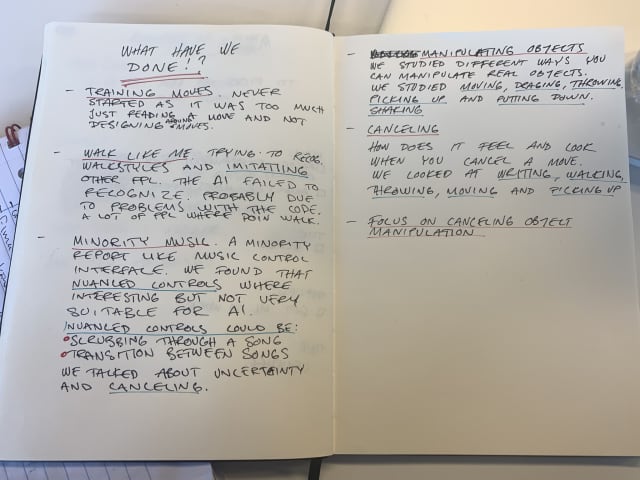 WHAT HAVE WE
DONE!?
- TRAINING MOVES. NEVER
STARTED AS IT WAS TOO MUCH
JUST READING A MOVE AND NOT
DESIGNING MOVES.
- WALK LIKE ME. TRYING TO RECOG.
WALKSTYLES AND IMITATING
OTHER PPL. THE AI FAILED TO
RECOGNIZE. PROBABLY DUE
TO PROBLEMS WITH THE CODE.
A LOT OF PPL WHERE DOIN WALK.
- MINORITY MUSIC. A MINORITY
REPORT LIKE MUSIC CONTROL
INTERFACE. WE FOUND THAT
NUANCED CONTROLS WHERE
INTERESTING BUT NOT VERY
SUITABLE FOR AI.
NUANCED CONTROLS COULD BE:
• SCRUBBING THROUGH A SONG
• TRANSITION BETWEEN SONGS
WE TALKED ABOUT UNCERTAINTY
AND CANCELING.
- MANIPULATING OBJECTS
WE STUDIED DIFFERENT WAYS YOU
CAN MANIPULATE REAL OBJECTS.
WE STUDIED MOVING, DRAGING, THROWING,
PICKING UP AND PUTTING DOWN.
SHARING
- CANCELING
HOW DOES IT FEEL AND LOOK
WHEN YOU CANCEL A MOVE.
WE LOOKED AT WRITING, WALKING,
THROWING, MOVING AND PICKING UP
- FOCUS ON CANCELING OBJECT
MANIPULATION